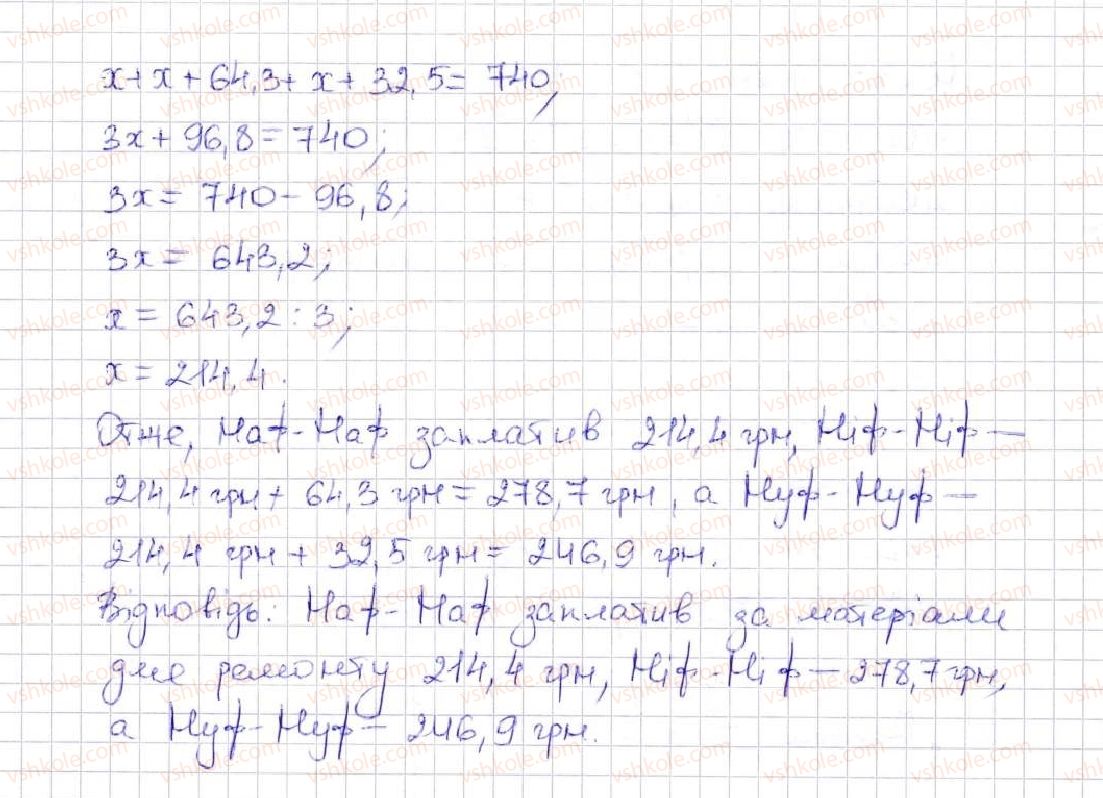 x + x + 64,3 + x + 32,5 = 740;
3x + 96,8 = 740;
3x = 740 - 96,8;
3x = 643,2;
x = 643,2 : 3;
x = 214,4.
Отже, Наф-Наф заплатив 214,4 грн, Ніф-Ніф —
214,4 грн + 64,3 грн = 278,7 грн, а Нуф-Нуф —
214,4 грн + 32,5 грн = 246,9 грн.
Відповідь: Наф-Наф заплатив за матеріали
для ремонту 214,4 грн, Ніф-Ніф — 278,7 грн,
а Нуф-Нуф — 246,9 грн.